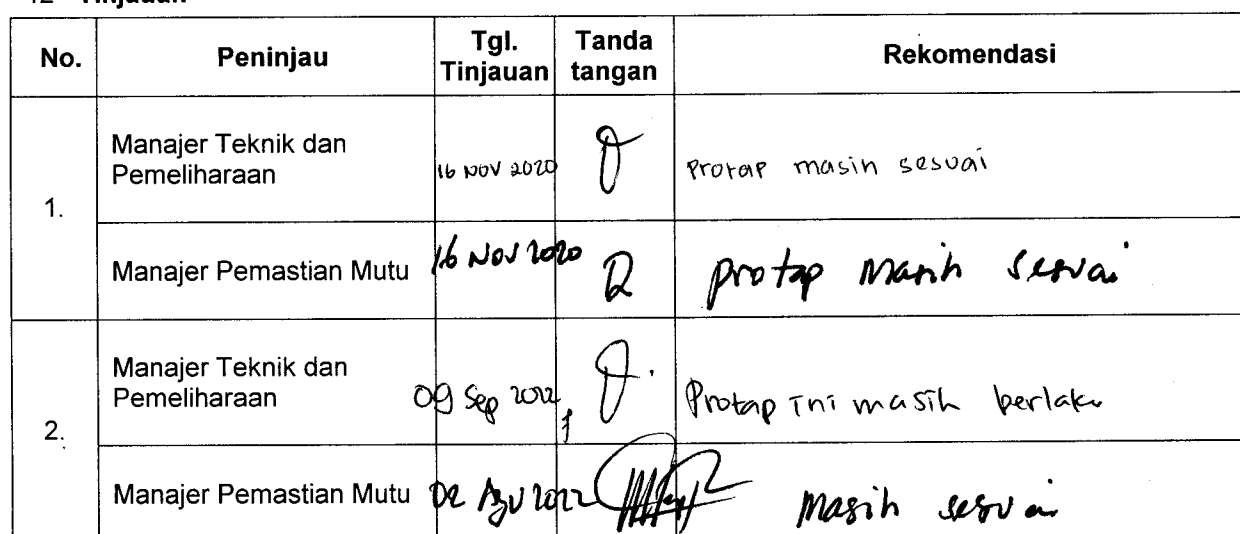 Tinjauan
No. Peninjau Tgl. Tinjauan Tanda tangan Rekomendasi
1.
Manajer Teknik dan Pemeliharaan 16 NOV 2020 Protap masih sesuai
Manajer Pemastian Mutu 16 Nov 2020 protap masih sesuai
2.
Manajer Teknik dan Pemeliharaan 09 Sep 2022 Protap ini masih berlaku
Manajer Pemastian Mutu 02 Agu 2022 masih sesuai